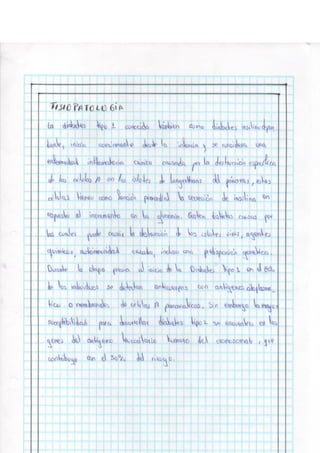 FISIOPATOLOGIA
La diabetes tipo 1 conocida también como diabetes insulinodepen
diente, inicia comúnmente desde la infancia y se considera una
enfermedad inflamatoria crónica causada por la destrucción específica
de las células β en los islotes de Langerhans del páncreas, estas
células tienen como función primordial la secreción de insulina en
respuesta al incremento en la glucemia. Existen distintas causas por
las cuales puede ocurrir la destrucción de los islotes virus, agentes
químicos, autoinmunidad cruzada, incluso una predisposición genética.
Durante la etapa previa al inicio de la Diabetes tipo 1 en el 80%
de los individuos se detectan anticuerpos con antígenos citoplasma
ticos o membranales de células β pancreáticas. Sin embargo la mayor
susceptibilidad para desarrollar diabetes tipo 1 se encuentra en los
genes del antígeno leucocitario humano del cromosoma 6, que
contribuye en el 50% del riesgo.